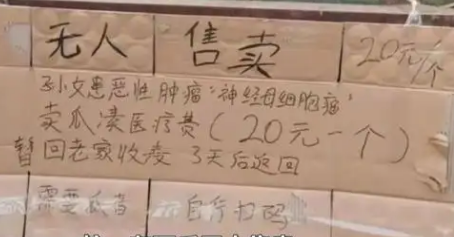 无人 售卖 20元/个
孙女患恶性肿瘤"神经母细胞瘤"
卖瓜凑医疗费(20元一个)
暂回老家收麦 3天后返回
需要瓜者 自行扫码